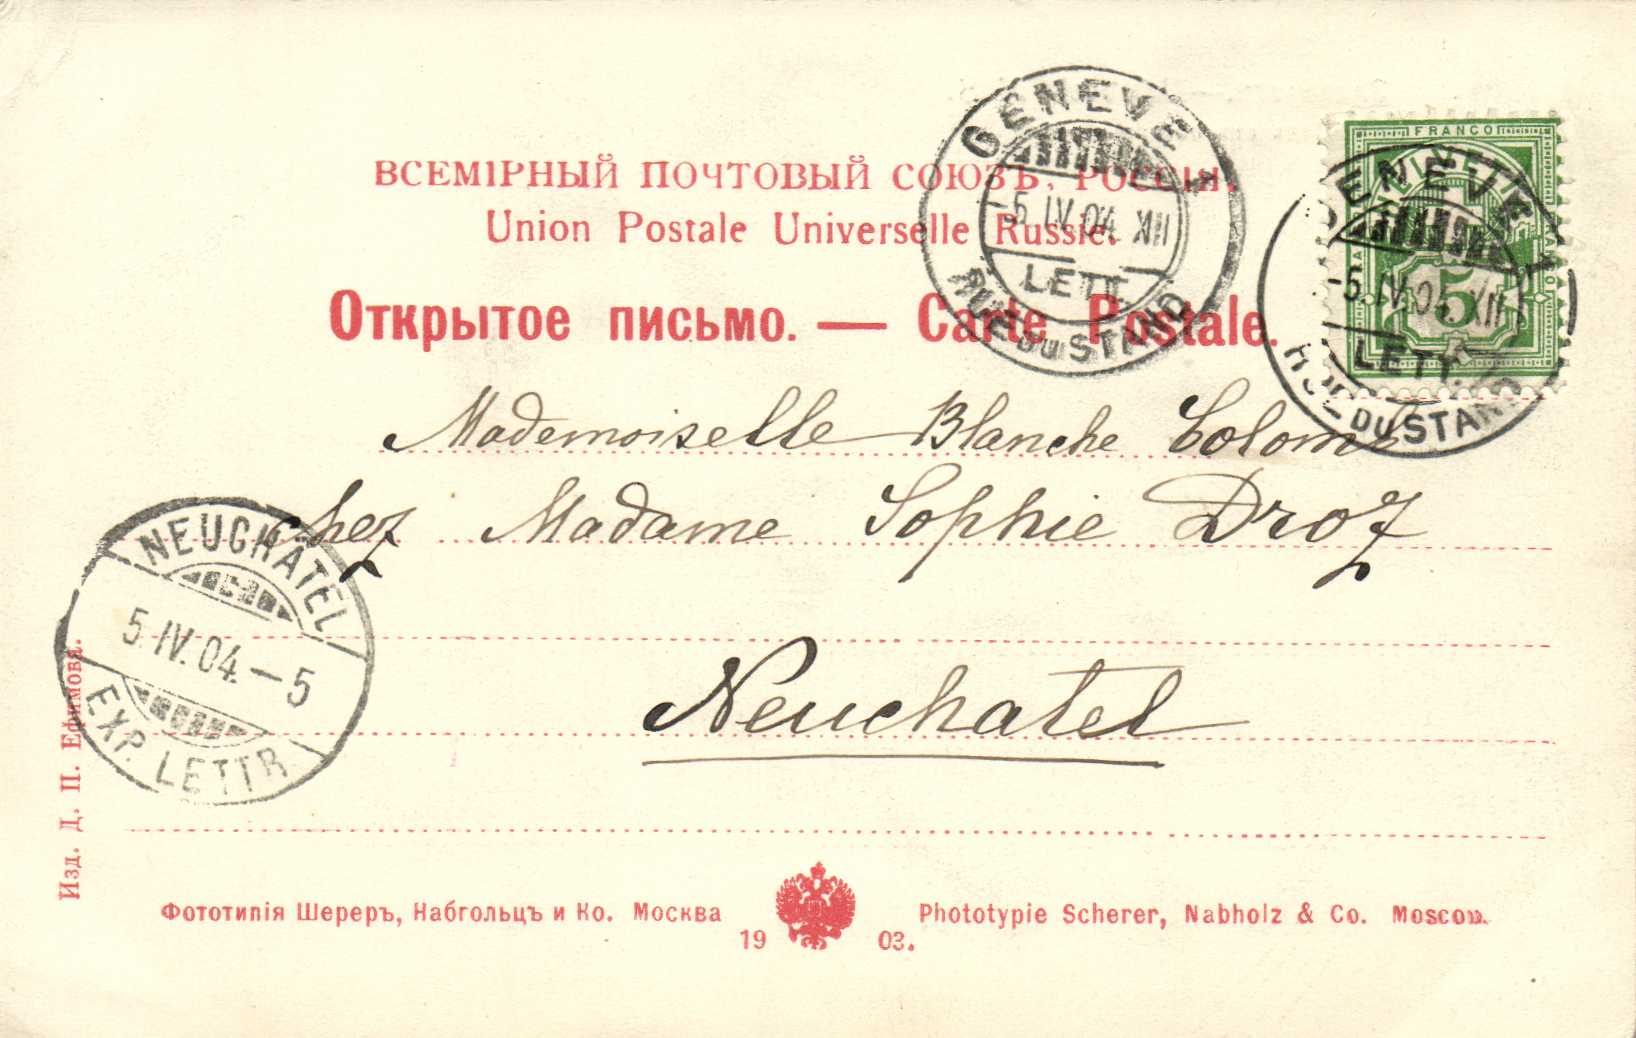 ВСЕМІРНЫЙ ПОЧТОВЫЙ СОЮЗЪ, РОССІЯ.
Union Postale Universelle Russie.
Открытое письмо. — Carte Postale.
GENÈVE
-5.IV.04. XII
LETT.
RUE DU STAND
FRANCO
5
GENÈVE
-5.IV.04. XII
LETT.
RUE DU STAND
Mademoiselle Blanche Colomb
chez Madame Sophie Droz
Neuchatel
NEUCHÂTEL
5.IV.04.—5
EXP. LETTR.
Изд. Д. П. Ефимова.
Фототипія Шереръ, Набгольцъ и Ко. Москва
Phototypie Scherer, Nabholz & Co. Moscou.
19 03.